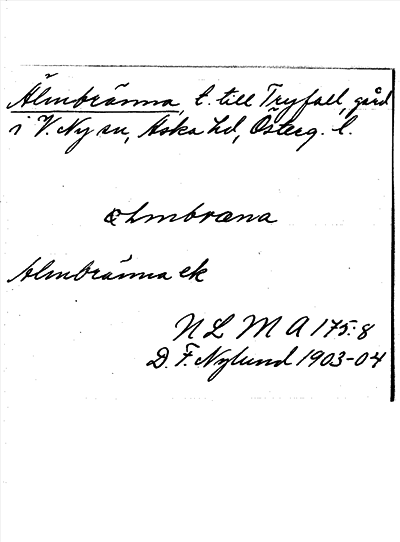 Älmbränna, t. till Tryfall, gård
i V. Ny sn, Aska hd, Österg. l.
ælmbræna
Älmbränna ek
N L M A 175:8
D. F. Nylund 1903-04